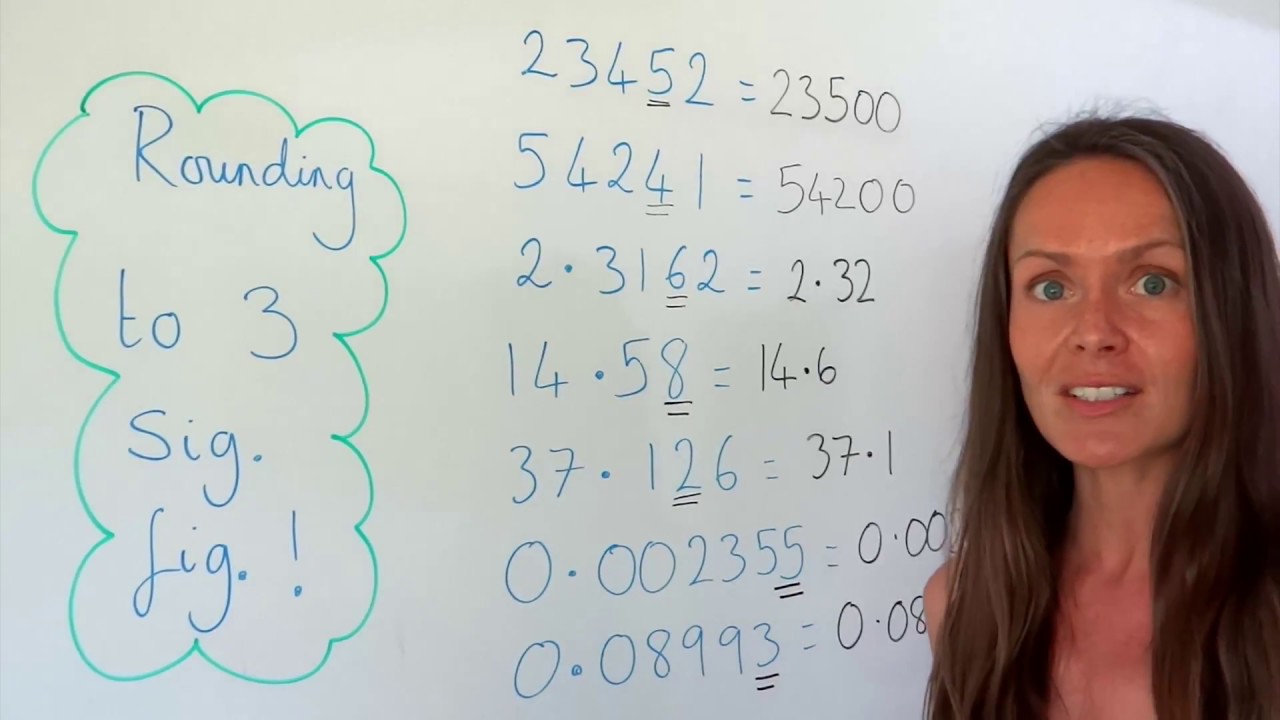 Rounding
to 3
Sig.
fig. !
23452 = 23500
54241 = 54200
2·3162 = 2·32
14·58 = 14·6
37·126 = 37·1
0·002355 = 0·00
0·08993 = 0·08